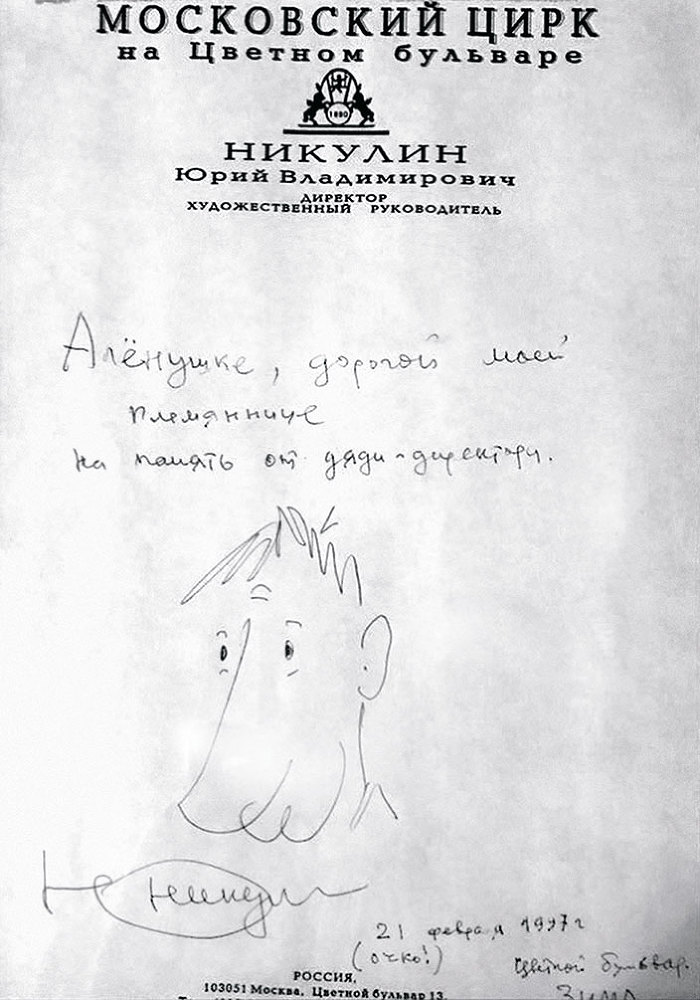 МОСКОВСКИЙ ЦИРК
на Цветном бульваре
1880
НИКУЛИН
Юрий Владимирович
ДИРЕКТОР
ХУДОЖЕСТВЕННЫЙ РУКОВОДИТЕЛЬ
Алёнушке, дорогой моей
племяннице
на память от дяди-директора.
Ю Никулин
21 февраля 1997 г
(очко!)
Цветной бульвар.
Зима
РОССИЯ,
103051 Москва, Цветной бульвар 13,